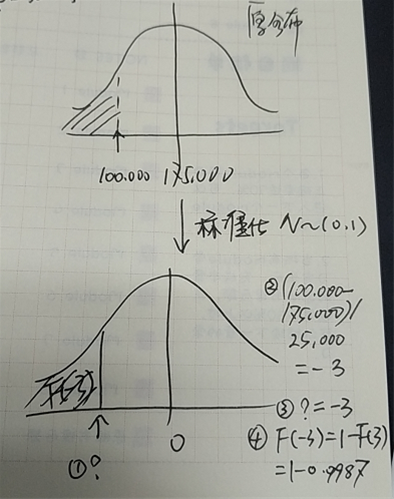 原分布
100.000 175.000
標準化 N~(0.1)
② (100.000-
175,000)/
25,000
= -3
F(-3)
③ ? = -3
0
④ F(-3)=1-F(3)
①?
=1-0.9987